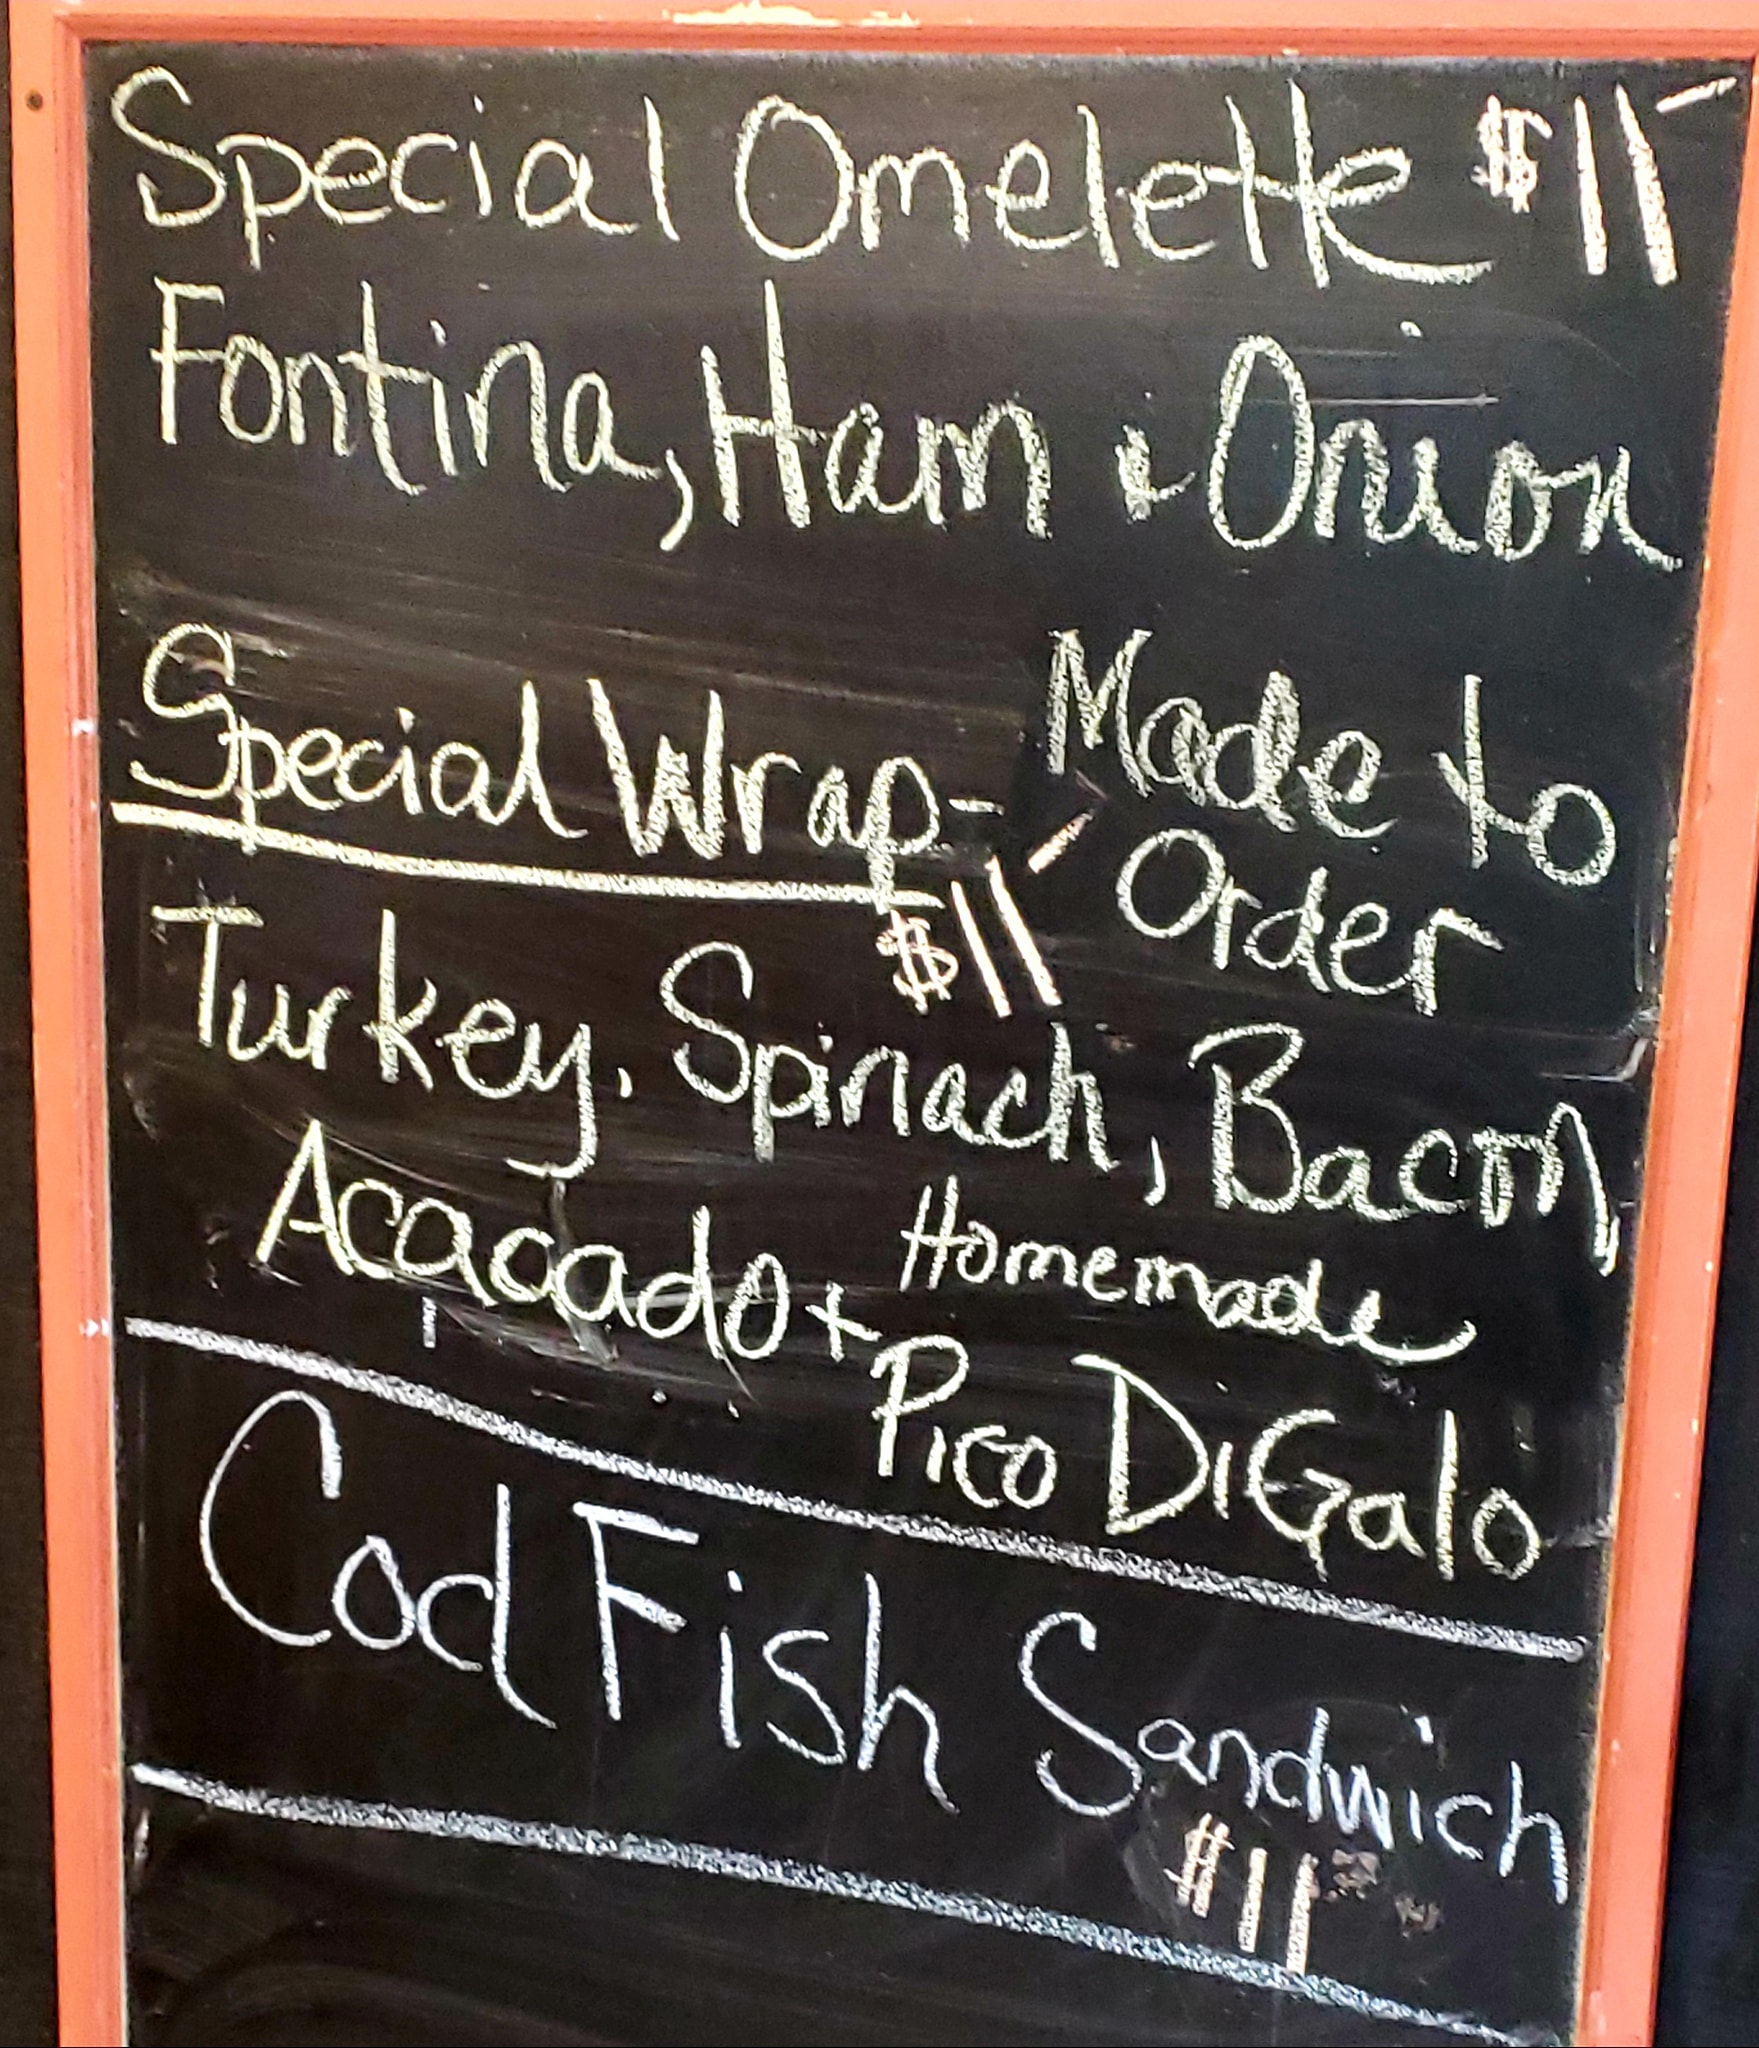 Special Omelette $11-
Fontina, Ham & Onion
Special Wrap- Made to
Order
$11-
Turkey, Spinach, Bacon,
Acacado + Homemade
Pico DiGalo
Cod Fish Sandwich
$11